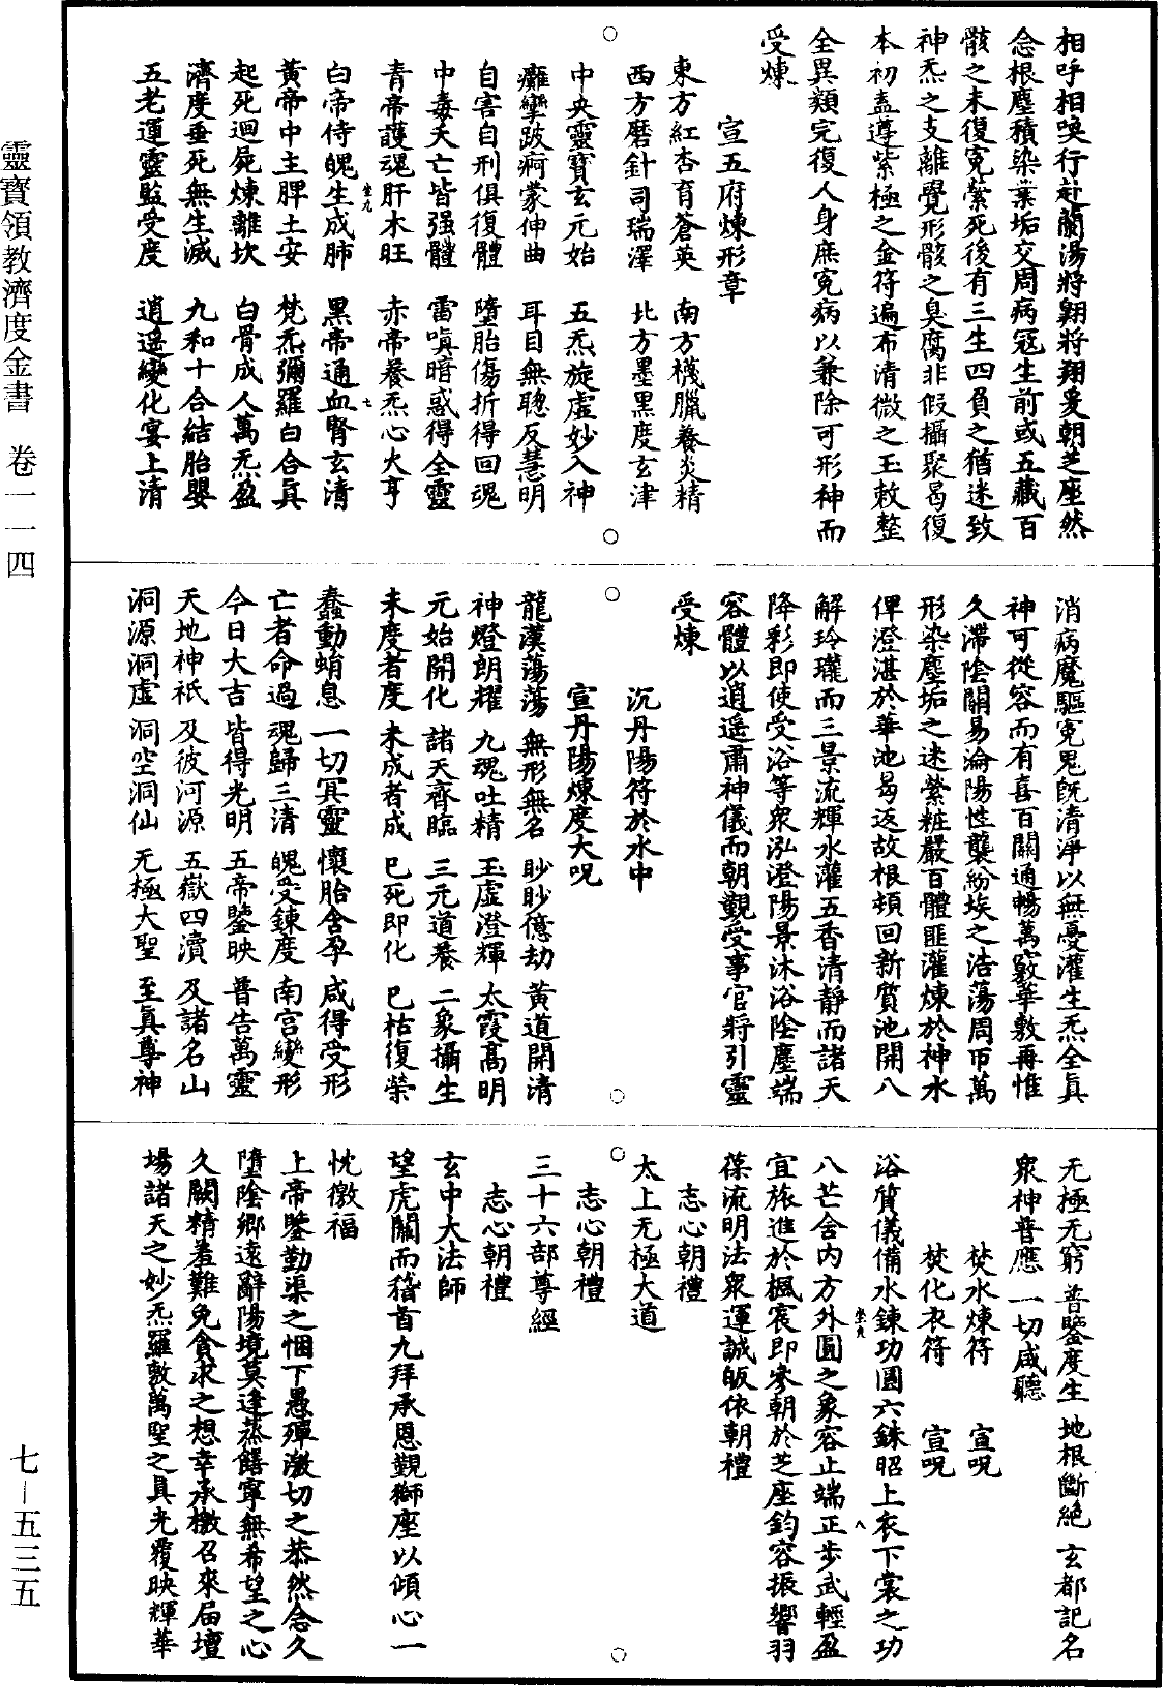 相呼相喚行赴蘭湯將翱將翔爰朝芝座然
念根塵積染業垢交周病冠生前或五藏百
骸之未復冤縈死後有三生四負之猶迷致
神炁之支離覺形骸之臭腐非假攝聚曷復
本初蓋遵紫極之金符遍布清微之玉敕整
全異類完復人身庶冤病以兼除可形神而
受煉
宣五府煉形章
東方紅杏育蒼英　南方機臘養炎精
西方磨針司瑞澤　北方墨黑度玄津
中央靈寶玄元始　五炁旋虛妙入神
癱攣跛痾蒙伸曲　耳目無聰反慧明
自害自刑俱復體　墮胎傷折得回魂
中毒夭亡皆强體　雷嗔暗惑得全靈
青帝護魂肝木旺　赤帝養炁心火亨
白帝侍魄生成肺　黑帝通血腎玄清
黃帝中主脾土安　梵炁彌羅白合真
起死迴屍煉離坎　白骨成人萬炁盈
濟度垂死無生滅　九和十合結胎嬰
五老運靈監受度　逍遙變化宴上清
消病魔驅冤鬼既清淨以無憂灌生炁全真
神可從容而有喜百關通暢萬竅華敷再惟
久滯陰關易淪陽性襲紛埃之浩蕩周帀萬
形染塵垢之迷縈粧嚴百體匪灌煉於神水
俾澄湛於華池曷返故根頓回新質池開八
解玲瓏而三景流輝水灌五香清靜而諸天
降彩即使受浴等眾泓澄陽景沐浴陰塵端
容體以逍遥肅神儀而朝覲受事官將引靈
受煉
沉丹陽符於水中
宣丹陽煉度大呪
龍漢蕩蕩　無形無名　眇眇億劫　黃道開清
神燈朗耀　九魂吐精　玉虛澄輝　太霞高明
元始開化　諸天齊臨　三元道養　二象攝生
未度者度　未成者成　已死即化　已枯復榮
蠢動蛸息　一切冥靈　懷胎含孕　咸得受形
亡者命過　魂歸三清　魄受鍊度　南宮變形
今日大吉　皆得光明　五帝鑒映　普告萬靈
天地神祇　及彼河源　五嶽四瀆　及諸名山
洞源洞虛　洞空洞仙　无極大聖　至真尊神
无極无窮　普鑒度生　地根斷絕　玄都記名
眾神普應　一切咸聽
焚水煉符　宣呪
焚化衣符　宣呪
浴質儀備水鍊功圓六銖昭上衣下裳之功
八芒含内方外圓之象容止端正步武輕盈
宜旅進於楓宸即參朝於芝座鈞容振響羽
葆流明法眾運誠皈依朝禮
志心朝禮
太上无極大道
志心朝禮
三十六部尊經
志心朝禮
玄中大法師
望虎關而稽首九拜承恩覲獅座以傾心一
忱徼福
上帝鑒勤渠之悃下愚殫激切之恭然念久
墮陰鄉遠辭陽境莫逢蒸饍寧無希望之心
久闕精羞難免貪求之想幸承檄召來届壇
場諸天之妙炁羅敷萬聖之真光覆映輝華
靈寶領教濟度金書　卷一一四
七－五三五